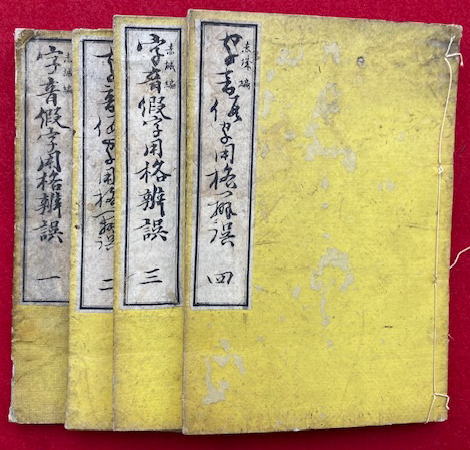 字音假字用格辨誤 一
字音假字用格辨誤 二
字音假字用格辨誤 三
字音假字用格辨誤 四